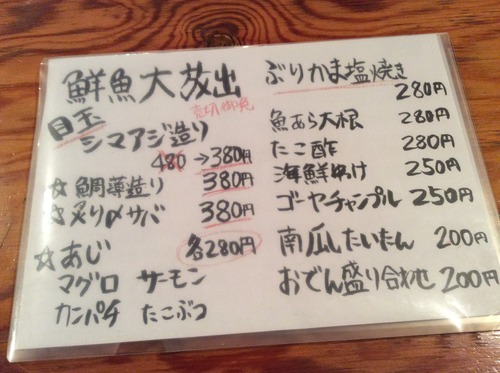 鮮魚大放出
売切御免
目玉
シマアジ造り
480→380円
☆鯛薄造り 380円
☆炙り〆サバ 380円
☆あじ 各280円
マグロ サーモン
カンパチ たこぶつ
ぶりかま塩焼き
280円
魚あら大根 280円
たこ酢 280円
海鮮ぬけ 250円
ゴーヤチャンプル 250円
南瓜したいたん 200円
おでん盛り合わせ 200円